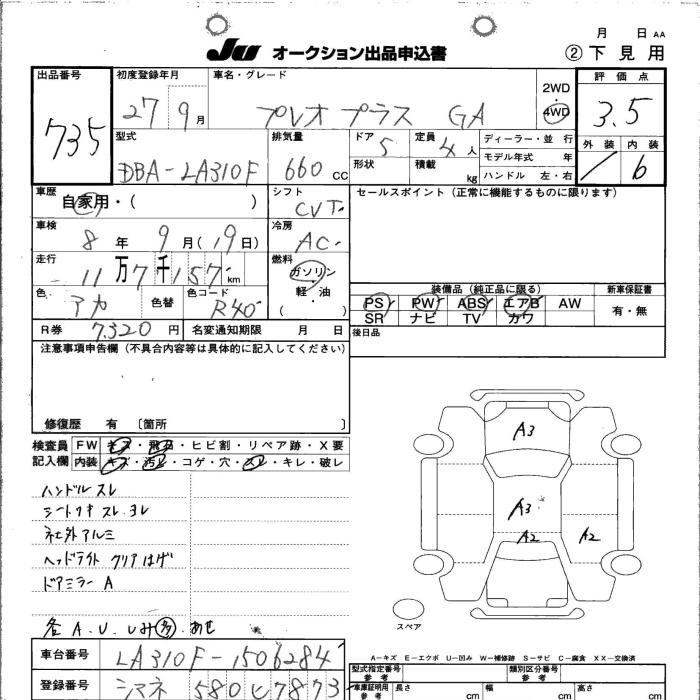 月 日 AA
JU オークション出品申込書 ②下見用
出品番号 初度登録年月 車名・グレード 2WD・4WD 評価点
735 27 9月 プレオプラス GA 3.5
型式 排気量 ドア 定員 ディーラー・並行 外装 内装
DBA-LA310F 660 CC 5 4人 モデル年式 年 / 6
形状 積載 kg ハンドル 左・右
車歴 自家用・( ) シフト CVT セールスポイント(正常に機能するものに限ります)
車検 8年 9月(19日) 冷房 AC
走行 11万7千157km 燃料 ガソリン
軽・油
( )
色 アカ 色替 色コード R40
装備品(純正品に限る) 新車保証書
PS PW ABS エアB AW 有・無
SR ナビ TV カワ
R券 7,320円 名変通知期限 月 日 後日品
注意事項申告欄(不具合内容等は具体的に記入してください)
修復歴 有 〔箇所 〕
検査員 FW キズ・飛石・ヒビ割・リペア跡・X要
記入欄 内装 キズ・汚レ・コゲ・穴・スレ・キレ・破レ
ハンドル スレ
シートワキ スレ ヨレ
社外アルミ
ヘッドライト クリアはげ
ドアミラー A
各 A.U.しみ多 あせ
A3
A3
A2 A2
スペア
A-キズ E-エクボ U-凹み W-補修跡 S-サビ C-腐食 XX-交換済
車台番号 LA310F-1506284
型式指定番号 参考 類別区分番号 参考
登録番号 シマネ 580 ヒ 7873
車庫証明用 参考 長さ cm 幅 cm 高さ cm